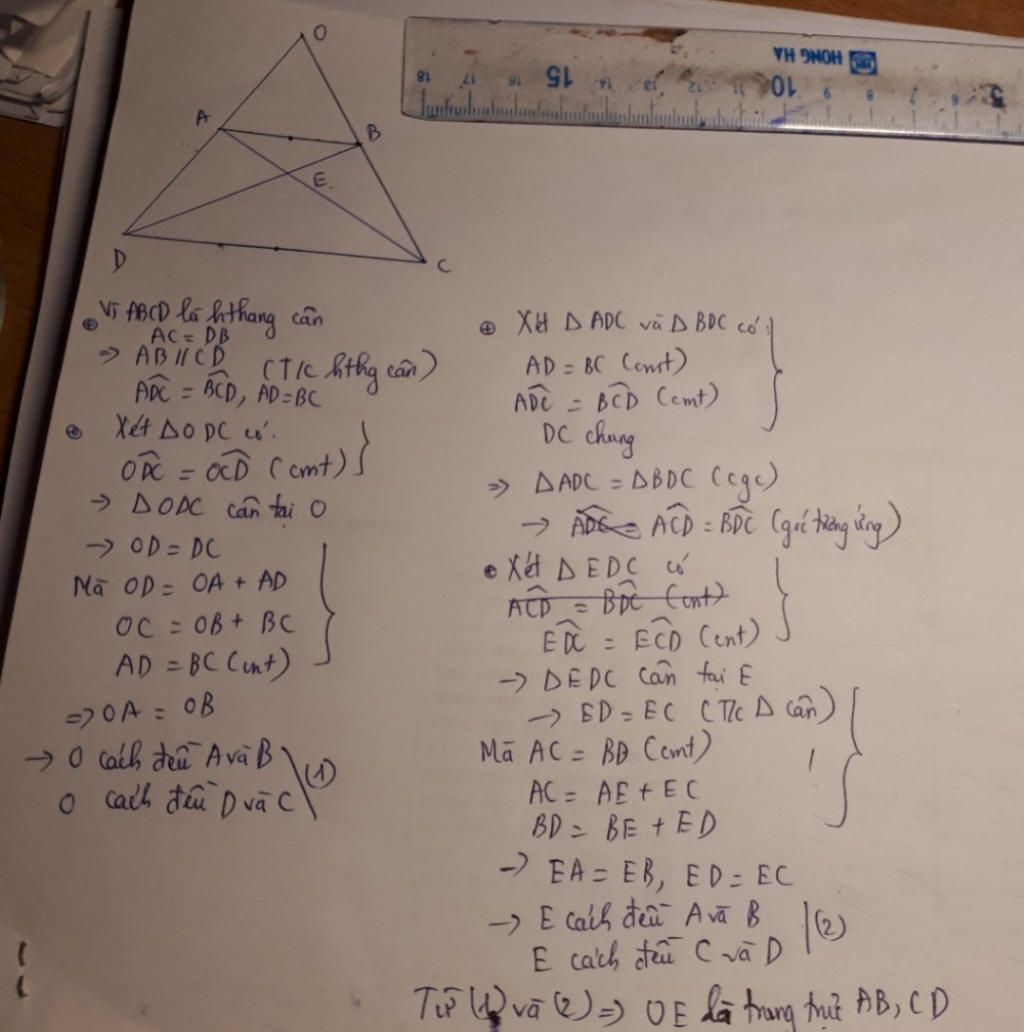 O
A
B
E.
D
C
HONG HA
5 6 7 8 9 10 11 12 13 14 15 16 17 18
⊕ Vì ABCD là hthang cân
AC = DB
=> AB // CD (T/c hthg cân)
ADC^ = BCD^, AD=BC
⊕ Xét ΔODC có.
ODC^ = OCD^ (cmt) }
-> ΔODC cân tại O
-> OD = DC
Mà OD = OA + AD
OC = OB + BC
AD = BC (cmt)
=> OA = OB
-> O cách đều A và B
O cách đều D và C (1)
⊕ Xét Δ ADC và Δ BDC có:
AD = BC (cmt)
ADC^ = BCD^ (cmt)
DC chung
=> ΔADC = ΔBDC (cgc)
-> ADC^ = ACD^ = BDC^ (góc tương ứng)
• Xét Δ EDC có
ACD^ = BDC^ (cmt)
EDC^ = ECD^ (cmt)
-> ΔEDC cân tại E
-> ED = EC (T/c Δ cân)
Mà AC = BD (cmt)
AC = AE + EC
BD = BE + ED
-> EA = EB, ED = EC
-> E cách đều A và B
E cách đều C và D (2)
Từ (1) và (2) => OE là trung trực AB, CD